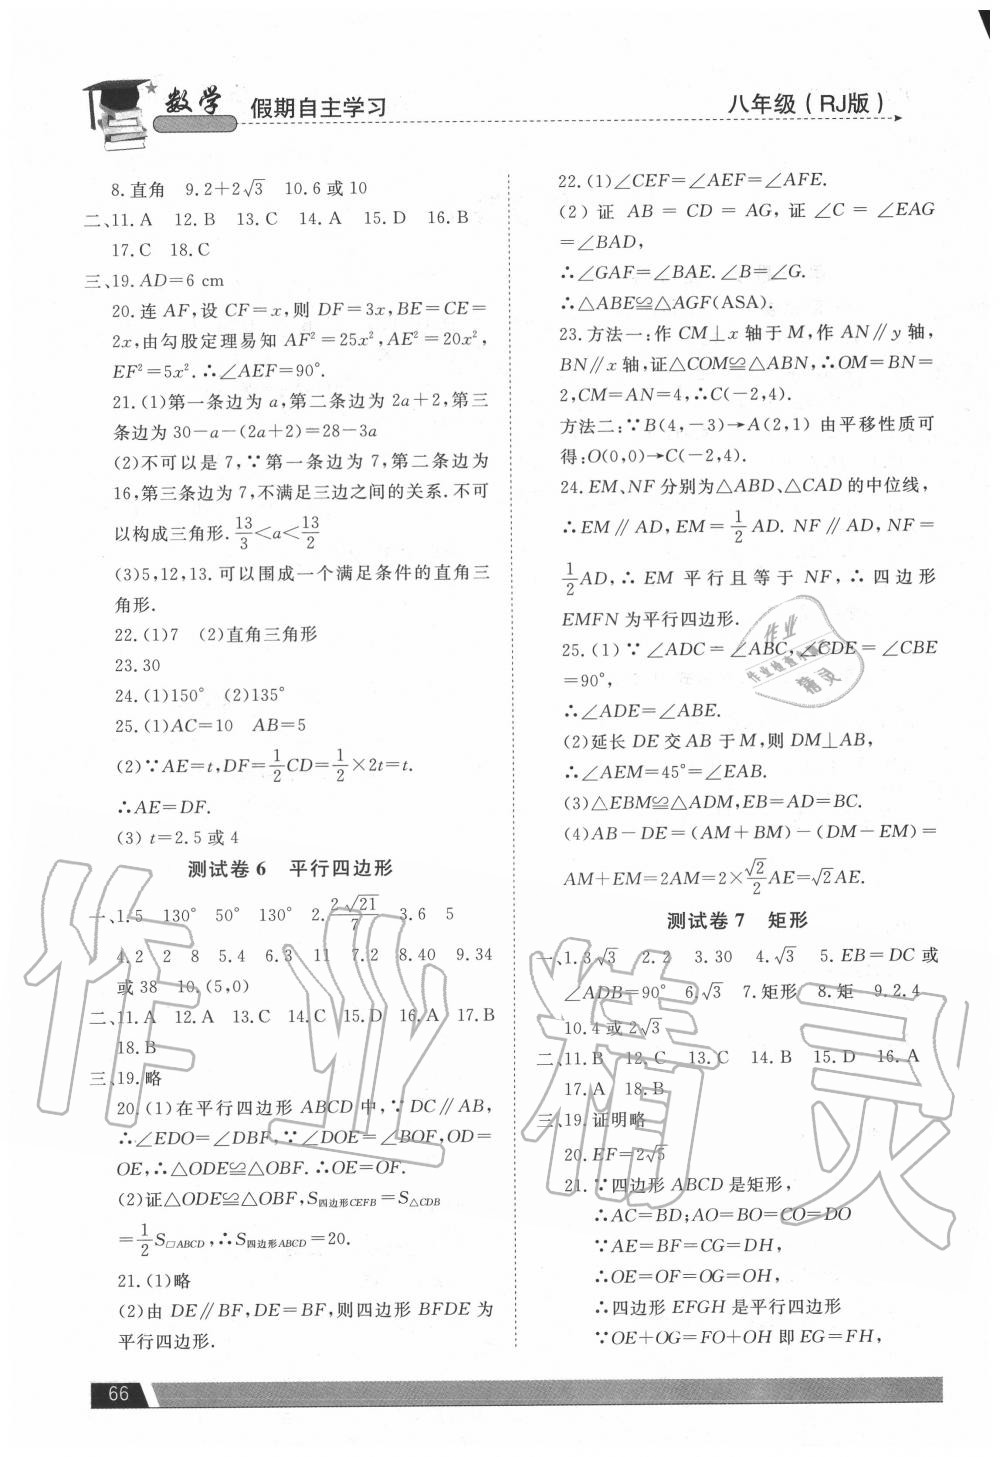 数学 假期自主学习
八年级(RJ版)
8.直角 9.2+2√3 10.6 或 10
二、11.A 12.B 13.C 14.A 15.D 16.B
17.C 18.C
三、19.AD=6 cm
20.连 AF,设 CF=x,则 DF=3x,BE=CE=
2x,由勾股定理易知 AF²=25x²,AE²=20x²,
EF²=5x².∴∠AEF=90°.
21.(1)第一条边为 a,第二条边为 2a+2,第三
条边为 30-a-(2a+2)=28-3a
(2)不可以是 7,∵第一条边为 7,第二条边为
16,第三条边为 7,不满足三边之间的关系.不可
以构成三角形.13/3<a<13/2
(3)5,12,13.可以围成一个满足条件的直角三
角形.
22.(1)7 (2)直角三角形
23.30
24.(1)150° (2)135°
25.(1)AC=10 AB=5
(2)∵AE=t,DF=1/2CD=1/2×2t=t.
∴AE=DF.
(3) t=2.5 或 4
测试卷 6 平行四边形
一、1.5 130° 50° 130° 2.2√21/7 3.6 5
4.2 2 8 5.4 6.3 11 7.2 8.40 9.34
或 38 10.(5,0)
二、11.A 12.A 13.C 14.C 15.D 16.A 17.B
18.B
三、19.略
20.(1)在平行四边形 ABCD 中,∵DC∥AB,
∴∠EDO=∠DBF,∵∠DOE=∠BOF,OD=
OE,∴△ODE≌△OBF.∴OE=OF.
(2)证△ODE≌△OBF,S四边形CEFB=S△CDB
=1/2S□ABCD,∴S四边形ABCD=20.
21.(1)略
(2)由 DE∥BF,DE=BF,则四边形 BFDE 为
平行四边形.
22.(1)∠CEF=∠AEF=∠AFE.
(2) 证 AB = CD = AG, 证 ∠C = ∠EAG
=∠BAD,
∴∠GAF=∠BAE.∠B=∠G.
∴△ABE≌△AGF(ASA).
23.方法一:作 CM⊥x 轴于 M,作 AN∥y 轴,
BN∥x 轴,证△COM≌△ABN,∴OM=BN=
2,CM=AN=4,∴C(-2,4).
方法二:∵B(4,-3)→A(2,1)由平移性质可
得:O(0,0)→C(-2,4).
24.EM、NF 分别为△ABD、△CAD 的中位线,
∴EM∥AD,EM=1/2AD.NF∥AD,NF=
1/2AD,∴EM 平行且等于 NF,∴四边形
EMFN 为平行四边形.
25.(1)∵∠ADC=∠ABC,∠CDE=∠CBE
=90°,
∴∠ADE=∠ABE.
(2)延长 DE 交 AB 于 M,则 DM⊥AB,
∴∠AEM=45°=∠EAB.
(3)△EBM≌△ADM,EB=AD=BC.
(4)AB-DE=(AM+BM)-(DM-EM)=
AM+EM=2AM=2×√2/2AE=√2AE.
测试卷 7 矩形
一、1.3√3 2.2 3.30 4.√3 5.EB=DC 或
∠ADB=90° 6.√3 7.矩形 8.矩 9.2.4
10.4 或 2√3
二、11.B 12.C 13.C 14.B 15.D 16.A
17.A 18.B
三、19.证明略
20.EF=2√5
21.∵四边形 ABCD 是矩形,
∴AC=BD;AO=BO=CO=DO
∵AE=BF=CG=DH,
∴OE=OF=OG=OH,
∴四边形 EFGH 是平行四边形
∵OE+OG=FO+OH 即 EG=FH,
66
作业精灵
作业
作业检查小助手
精灵